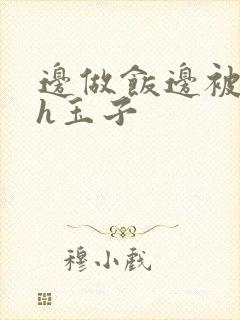 邊做飯邊被
h玉子
穆小戲